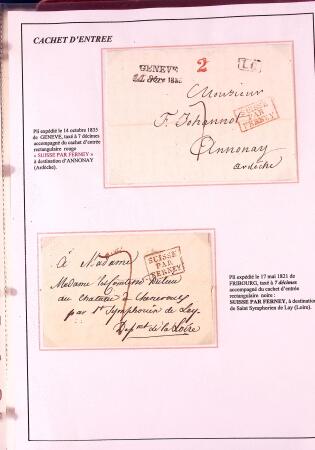 CACHET D'ENTREE
Pli expédié le 14 octobre 1835
de GENEVE, taxé à 7 décimes
accompagné du cachet d'entrée
rectangulaire rouge
« SUISSE PAR FERNEY »
à destination d'ANNONAY
(Ardèche).
GENEVE
2
L.F.
Monsieur
F. Johannot
Annonay
ardèche
SUISSE
PAR
FERNEY
à Madame
Madame
au chateau de
par St Symphorien de Lay
Depmt de la Loire
SUISSE
PAR
FERNEY
Pli expédié le 17 mai 1821 de
FRIBOURG, taxé à 7 décimes
accompagné du cachet d'entrée
rectangulaire noire :
SUISSE PAR FERNEY, à destination
de Saint Symphorien de Lay (Loire).